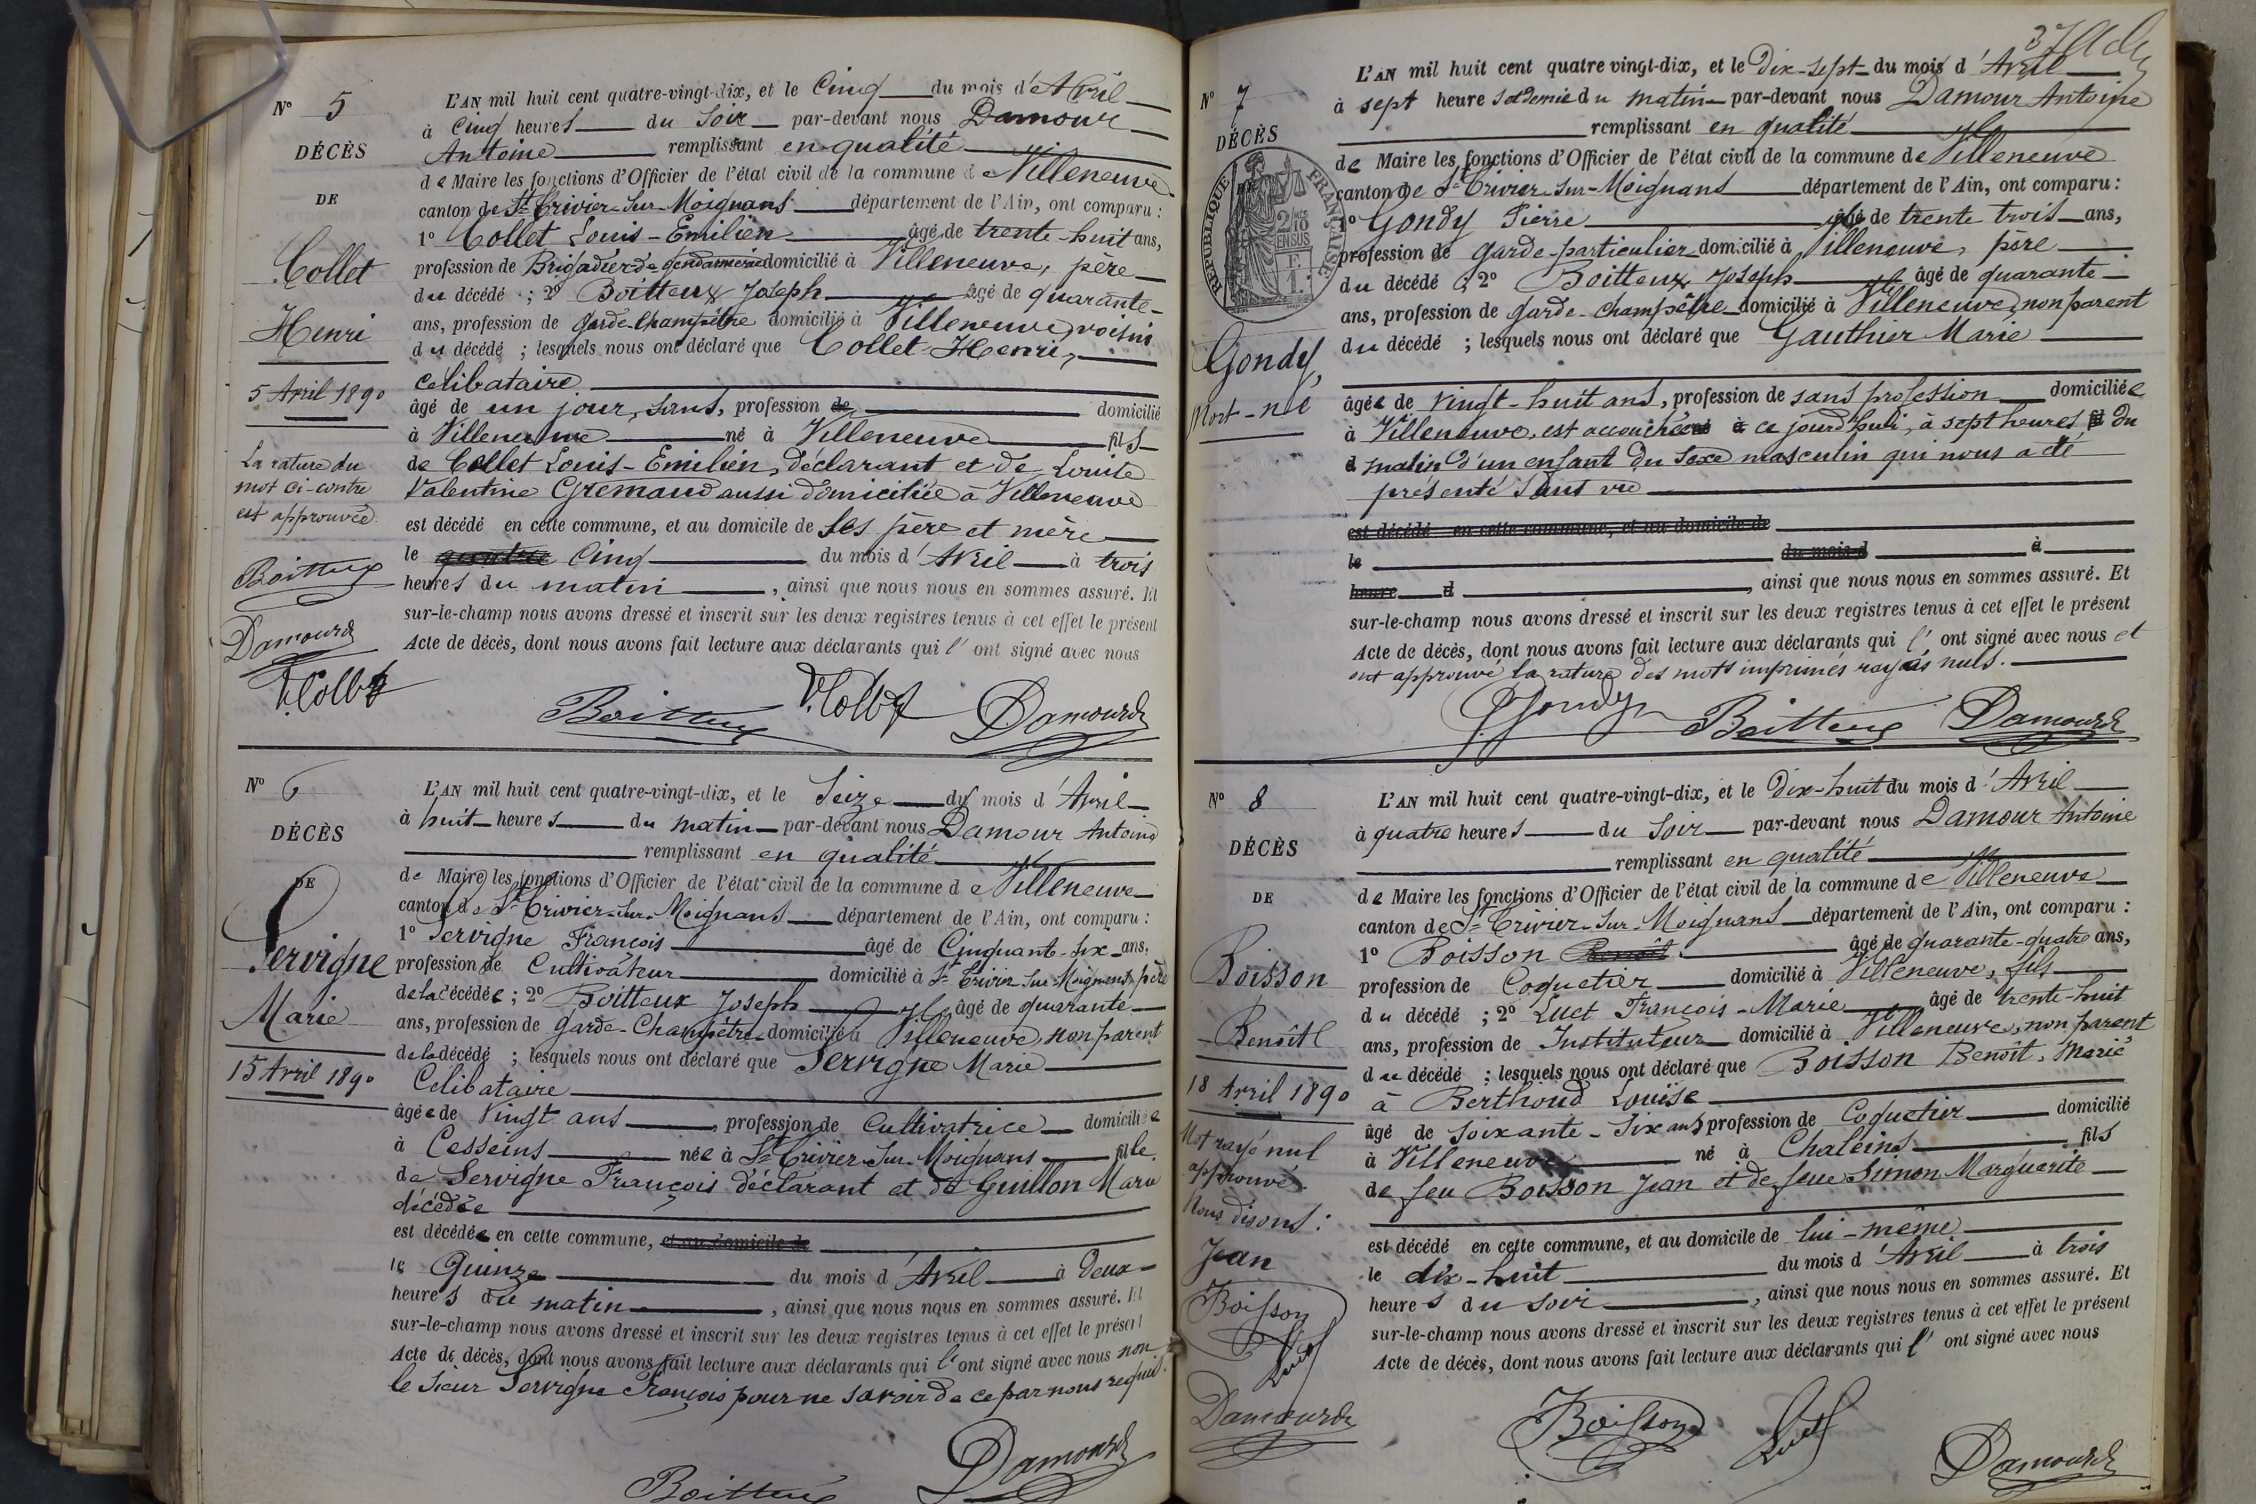 Nº 5
DÉCÈS
DE
Collet
Henri
5 Avril 1890
La rature du
mot ci-contre
est approuvée
Boitteux
Damour
Collet
L'AN mil huit cent quatre-vingt-dix, et le Cinq du mois d'Avril
à Cinq heures du Soir par-devant nous Damour
Antoine remplissant en qualité
de Maire les fonctions d'Officier de l'état civil de la commune de Villeneuve
canton de St Trivier-sur-Moignans département de l'Ain, ont comparu :
1º Collet Louis-Emilien âgé de trente-huit ans,
profession de Brigadier de gendarmerie domicilié à Villeneuve, père
du décédé ; 2º Boitteux Joseph âgé de quarante
ans, profession de garde-champêtre domicilié à Villeneuve voisin
du décédé ; lesquels nous ont déclaré que Collet Henri,
Celibataire
âgé de un jour, sans, profession de domicilié
à Villeneuve né à Villeneuve fils
de Collet Louis-Emilien, déclarant et de Louise
Valentine Gremaud aussi domiciliée à Villeneuve
est décédé en cette commune, et au domicile de ses père et mère
le quatre Cinq du mois d'Avril à trois
heures du matin, ainsi que nous nous en sommes assuré. Et
sur-le-champ nous avons dressé et inscrit sur les deux registres tenus à cet effet le présent
Acte de décès, dont nous avons fait lecture aux déclarants qui l'ont signé avec nous
Boitteux Collet Damour
Nº 6
DÉCÈS
DE
Servigne
Marie
15 Avril 1890
L'AN mil huit cent quatre-vingt-dix, et le Seize du mois d'Avril
à huit heures du matin par-devant nous Damour Antoine
remplissant en qualité
de Maire les fonctions d'Officier de l'état civil de la commune de Villeneuve
canton de St Trivier-sur-Moignans département de l'Ain, ont comparu :
1º Servigne François âgé de Cinquante-six ans,
profession de Cultivateur domicilié à St Trivier sur Moignans, père
de la décédée ; 2º Boitteux Joseph âgé de quarante
ans, profession de garde-Champêtre domicilié à Villeneuve, non parent
de la décédé ; lesquels nous ont déclaré que Servigne Marie
Celibataire
âgée de Vingt ans, profession de Cultivatrice domiciliée
à Cesseins née à St Trivier-sur-Moignans fille
de Servigne François déclarant et de Guillon Marie
décédée
est décédée en cette commune, et au domicile de
le Quinze du mois d'Avril à deux
heures du matin, ainsi que nous nous en sommes assuré. Et
sur-le-champ nous avons dressé et inscrit sur les deux registres tenus à cet effet le présent
Acte de décès, dont nous avons fait lecture aux déclarants qui l'ont signé avec nous non
le sieur Servigne François pour ne savoir de ce par nous requis.
Boitteux Damour
37
Nº 7
DÉCÈS
DE
RÉPUBLIQUE FRANÇAISE
2/10 EN SUS
Gondy,
Mort-né
L'AN mil huit cent quatre vingt-dix, et le Dix-sept du mois d'Avril
à sept heure et demie du matin par-devant nous Damour Antoine
remplissant en qualité
de Maire les fonctions d'Officier de l'état civil de la commune de Villeneuve
canton de St Trivier-sur-Moignans département de l'Ain, ont comparu :
1º Gondy Pierre âgé de trente trois ans,
profession de garde-particulier domicilié à Villeneuve, père
du décédé ; 2º Boitteux Joseph âgé de quarante
ans, profession de garde-champêtre domicilié à Villeneuve, non parent
du décédé ; lesquels nous ont déclaré que Gauthier Marie
âgée de Vingt-huit ans, profession de sans profession domiciliée
à Villeneuve, est accouchée à ce jourd'hui, à sept heures du
matin d'un enfant du sexe masculin qui nous a été
présenté sans vie
est décédé en cette commune, et au domicile de
le du mois d à
heure d, ainsi que nous nous en sommes assuré. Et
sur-le-champ nous avons dressé et inscrit sur les deux registres tenus à cet effet le présent
Acte de décès, dont nous avons fait lecture aux déclarants qui l'ont signé avec nous et
ont approuvé la rature des mots imprimés rayés nuls.
Gondy Boitteux Damour
Nº 8
DÉCÈS
DE
Boisson
Benoît
18 Avril 1890
Mot rayé nul
approuvé.
Nous disons :
Jean
Boisson
Luet
Damour
L'AN mil huit cent quatre-vingt-dix, et le Dix-huit du mois d'Avril
à quatre heures du Soir par-devant nous Damour Antoine
remplissant en qualité
de Maire les fonctions d'Officier de l'état civil de la commune de Villeneuve
canton de St Trivier-sur-Moignans département de l'Ain, ont comparu :
1º Boisson Benoît âgé de quarante-quatre ans,
profession de Coquetier domicilié à Villeneuve, fils
du décédé ; 2º Luet François-Marie âgé de trente-huit
ans, profession de Instituteur domicilié à Villeneuve, non parent
du décédé ; lesquels nous ont déclaré que Boisson Benoît, Marié
à Berthoud Louise
âgé de soixante-six ans profession de Coquetier domicilié
à Villeneuve né à Chaleins fils
de feu Boisson Jean et de feue Simon Marguerite
est décédé en cette commune, et au domicile de lui-même
le dix-huit du mois d'Avril à trois
heures du soir, ainsi que nous nous en sommes assuré. Et
sur-le-champ nous avons dressé et inscrit sur les deux registres tenus à cet effet le présent
Acte de décès, dont nous avons fait lecture aux déclarants qui l'ont signé avec nous
Boisson Luet Damour